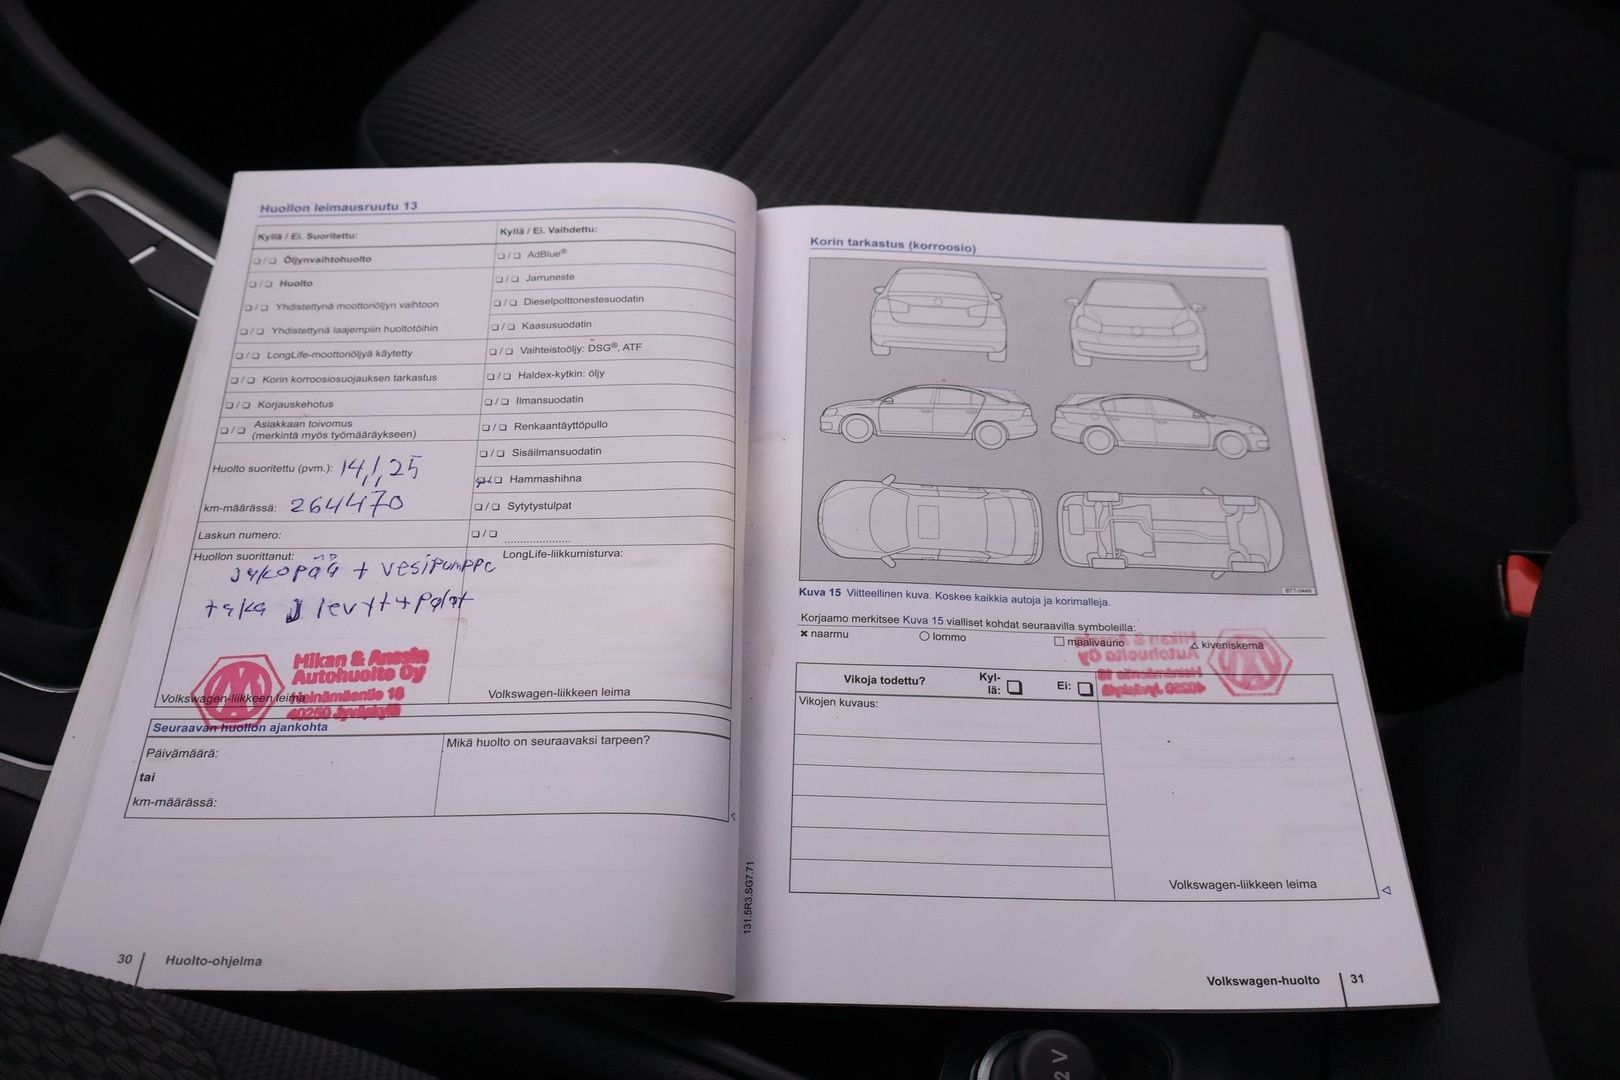 Huollon leimausruutu 13
Kyllä / Ei. Suoritettu:
❑ / ❑ Öljynvaihtohuolto
❑ / ❑ Huolto
❑ / ❑ Yhdistettynä moottoriöljyn vaihtoon
❑ / ❑ Yhdistettynä laajempiin huoltotöihin
❑ / ❑ LongLife-moottoriöljyä käytetty
❑ / ❑ Korin korroosiosuojauksen tarkastus
❑ / ❑ Korjauskehotus
❑ / ❑ Asiakkaan toivomus
(merkintä myös työmääräykseen)
Huolto suoritettu (pvm.): 14,1,25
km-määrässä: 264470
Laskun numero:
Huollon suorittanut:
jakopää + vesipumppu
taka levyt + palat
Mikan & Anssin
Autohuolto Oy
Heinämäentie 16
40250 Jyväskylä
Volkswagen-liikkeen leima
Kyllä / Ei. Vaihdettu:
❑ / ❑ AdBlue®
❑ / ❑ Jarruneste
❑ / ❑ Dieselpolttonestesuodatin
❑ / ❑ Kaasusuodatin
❑ / ❑ Vaihteistoöljy: DSG®, ATF
❑ / ❑ Haldex-kytkin: öljy
❑ / ❑ Ilmansuodatin
❑ / ❑ Renkaantäyttöpullo
❑ / ❑ Sisäilmansuodatin
❑ / ❑ Hammashihna
❑ / ❑ Sytytystulpat
❑ / ❑ ....................
LongLife-liikkumisturva:
Volkswagen-liikkeen leima
Seuraavan huollon ajankohta
Päivämäärä:
tai
km-määrässä:
Mikä huolto on seuraavaksi tarpeen?
30 Huolto-ohjelma
131.5R3.SG7.71
Korin tarkastus (korroosio)
BTT-0449
Kuva 15 Viitteellinen kuva. Koskee kaikkia autoja ja korimalleja.
Korjaamo merkitsee Kuva 15 vialliset kohdat seuraavilla symboleilla:
✖ naarmu ○ lommo ☐ maalivaurio △ kiveniskemä
Vikoja todettu? Kyl-
lä: ❑ Ei: ❑
Vikojen kuvaus:
Volkswagen-liikkeen leima
Volkswagen-huolto 31
2 V